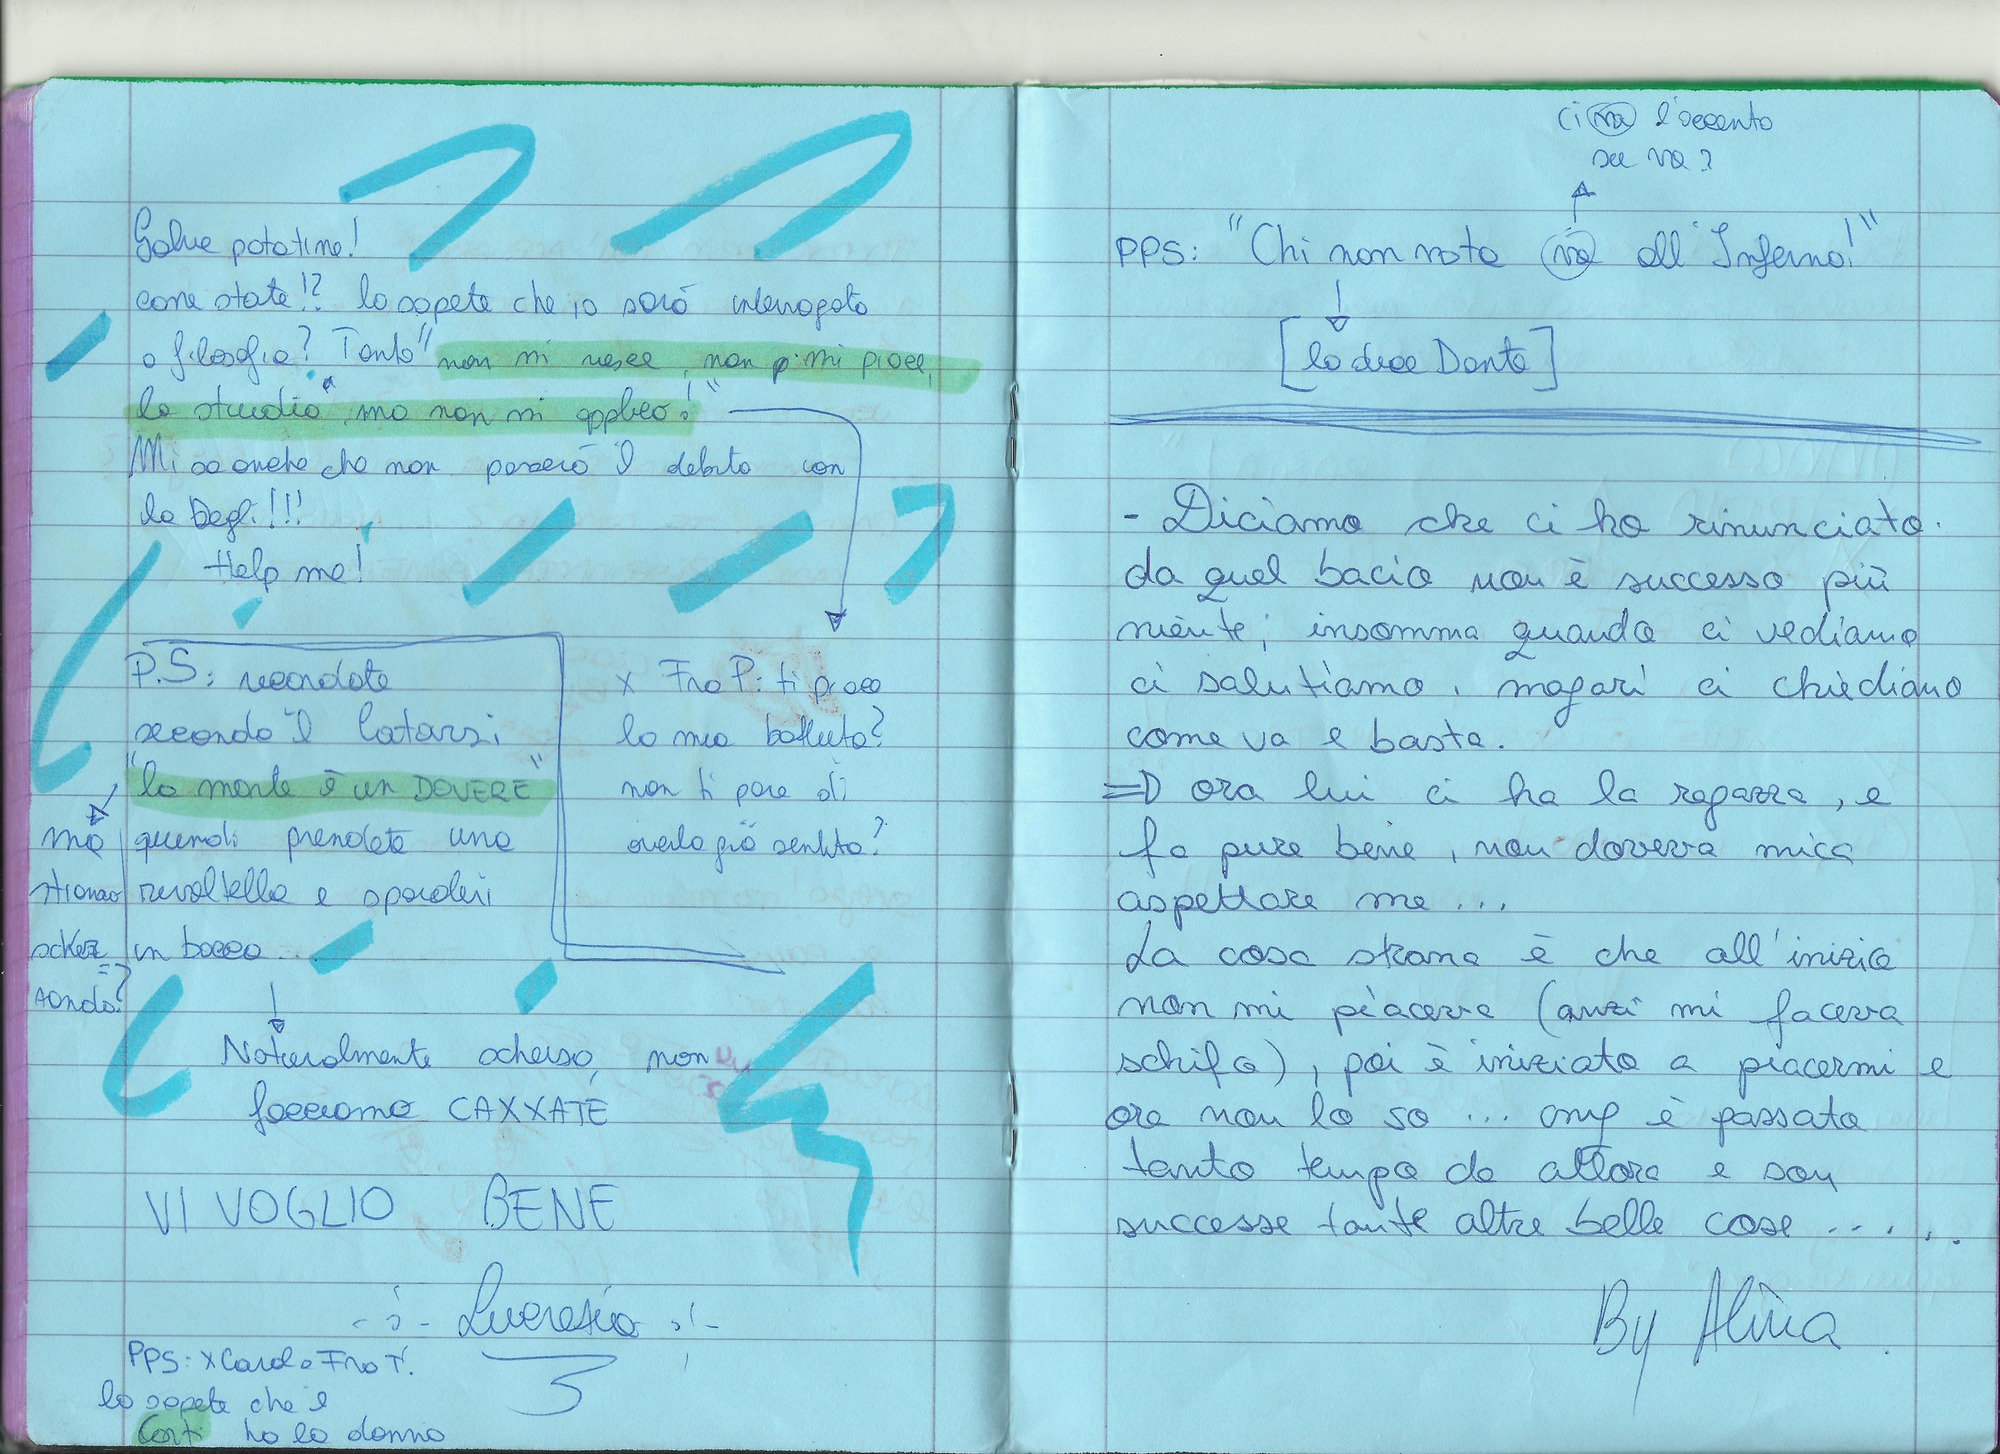 Salve patatine!
come state!? lo sapete che io sarò interrogata
a filosofia? Tanto "non mi riesce, non mi piace,
la studio, ma non mi applico!"
Mi sa anche che non passerò il debito con
la Degli!!!
Help me!
P.S: ricordate
secondo il Catarzi
"la morte è un DOVERE"
quindi prendete una
rivoltella e sparatevi
in bocca...
ma
stiamo
scherz
=
ando?
Naturalmente scherso, non
facciamo CAXXATE
x Fra P: ti piace
la mia battuta?
non ti pare di
averla già sentita?
VI VOGLIO BENE
Lucrezia
PPS: x Carol e Fra T.
lo sapete che il
Corti ha la donna
ci va l'accento
su va?
PPS: "Chi non vota va all'Inferno!"
[lo dice Dante]
- Diciamo che ci ho rinunciato.
da quel bacio non è successo più
niente; insomma quando ci vediamo
ci salutiamo, magari ci chiediamo
come va e basta.
=D ora lui ci ha la ragazza, e
fa pure bene, non doveva mica
aspettare me...
La cosa strana è che all'inizio
non mi piaceva (anzi mi faceva
schifo), poi è iniziato a piacermi e
ora non lo so... cmq è passato
tanto tempo da allora e son
successe tante altre belle cose .....
By Alina